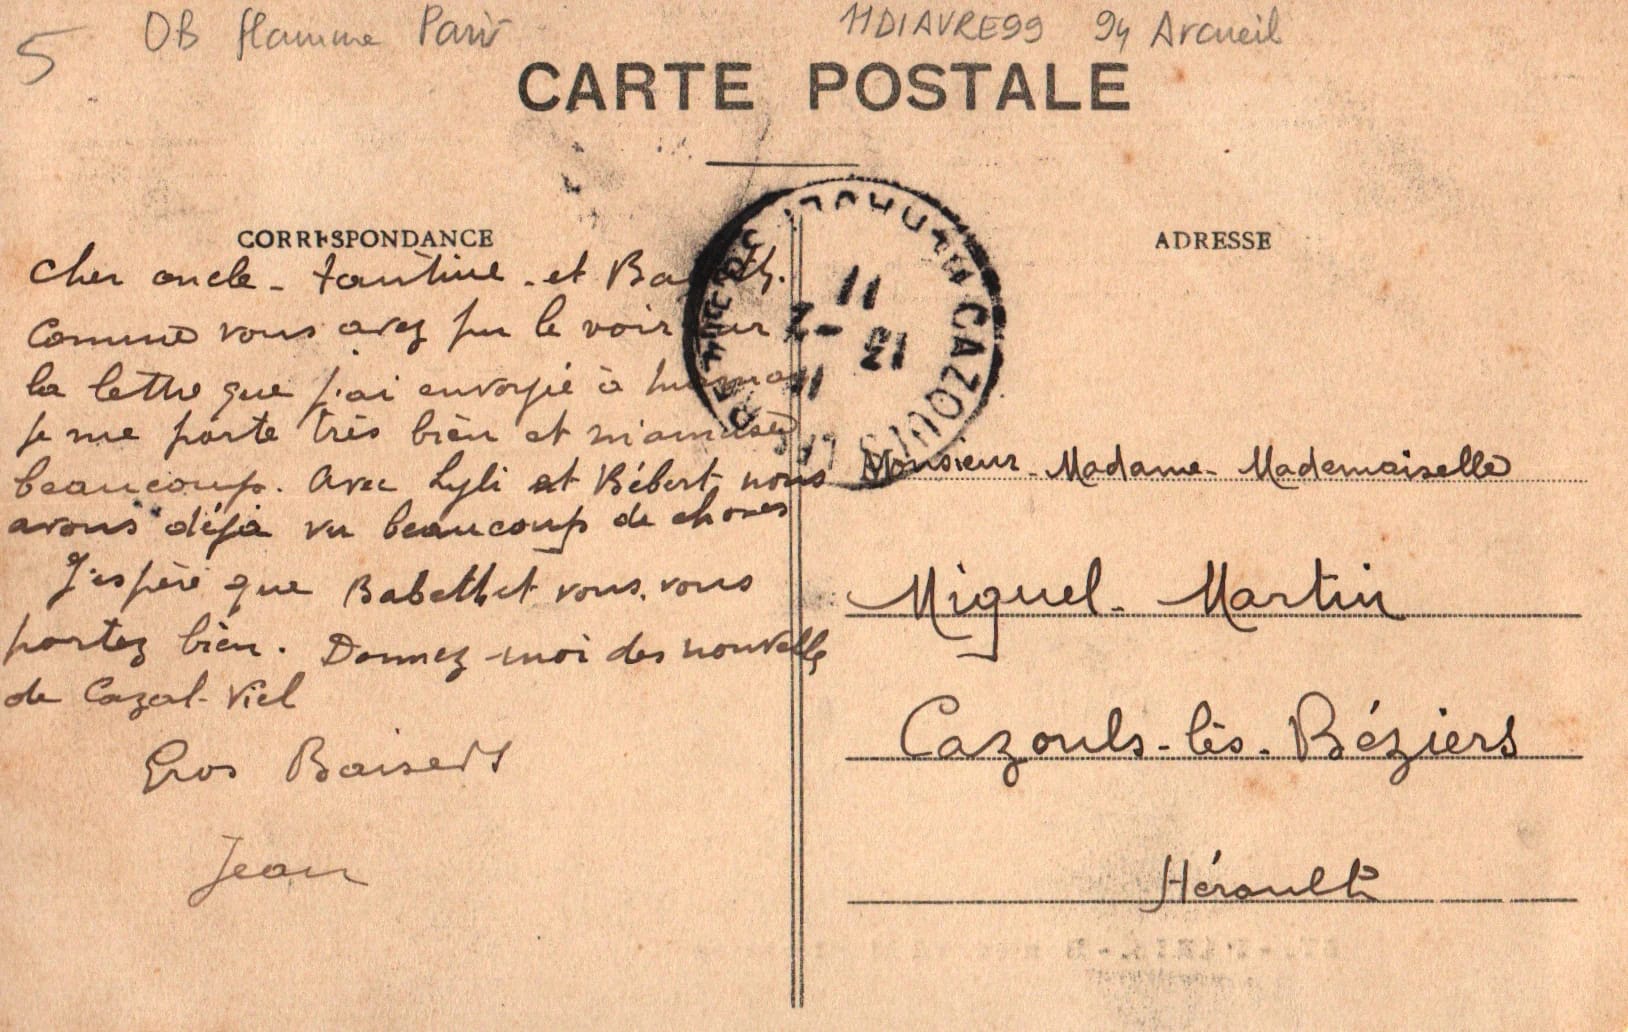 5 OB flamme Paris 11DIAVRE99 94 Arcueil
CARTE POSTALE
CORRESPONDANCE
Cher oncle - tantine - et
Comme vous avez pu le voir sur
la lettre que j'ai envoyié à maman
je me porte très bien et m'amuse
beaucoup. Avec Lyli et Bébert nous
avons déjà vu beaucoup de choses
J'espère que Babeth et vous, vous
portez bien. Donnez-moi des nouvelle
de Cazal-Viel
Gros Baisers
Jean
CAZOULS
HERAULT
11
13 - 2
11
ADRESSE
Monsieur - Madame - Mademoiselle
Miguel - Martin
Cazouls-lès-Béziers
Hérault